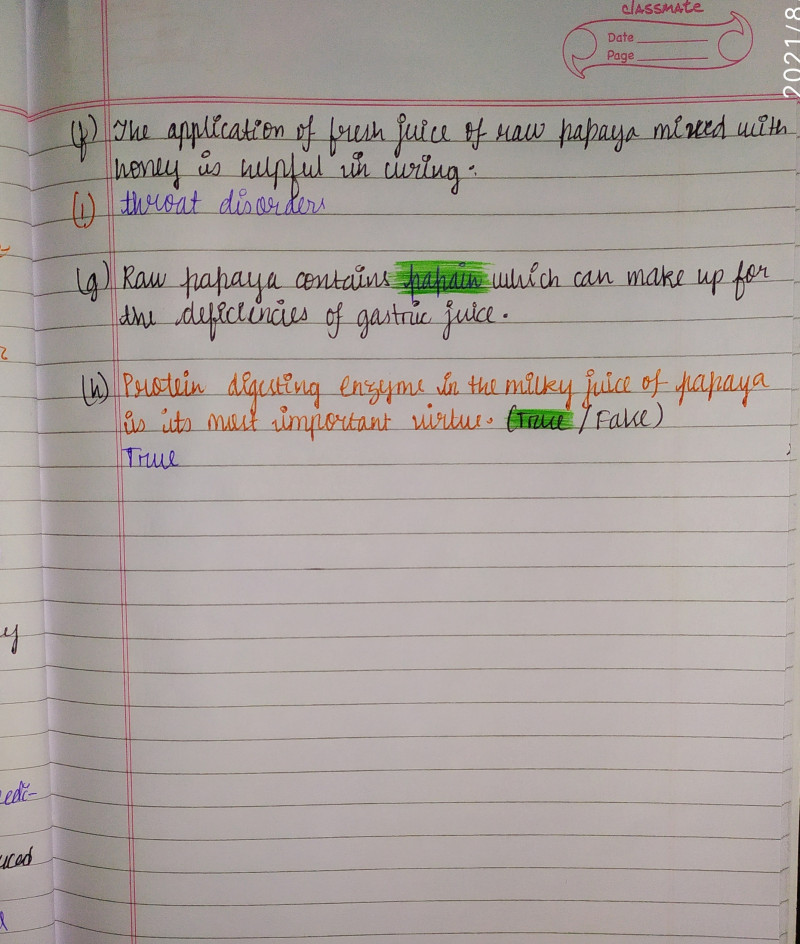 classmate
Date
Page
2021/8
(f) The application of fresh juice of raw papaya mixed with
honey is helpful in curing:
(i) throat disorders
(g) Raw papaya contains papain which can make up for
the deficiencies of gastric juice.
(h) Protein digesting enzyme in the milky juice of papaya
is its most important virtue. (True / Fake)
True
y
edi-
uced